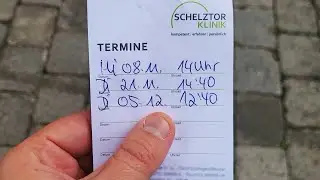 SCHELZTOR
KLINIK
kompetent | erfahren | persönlich
TERMINE
Mi 08. 11. 14 Uhr
Di 21. 11. 14:40
Di 05. 12. 12:40